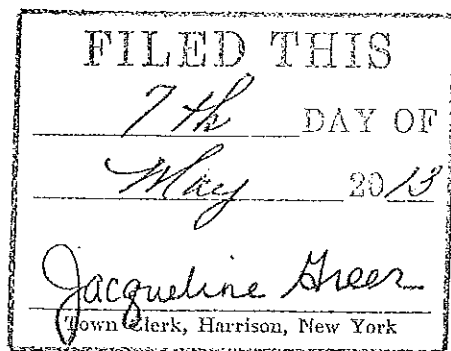 FILED THIS
7th DAY OF
May 2013
Jacqueline Greer
Town Clerk, Harrison, New York